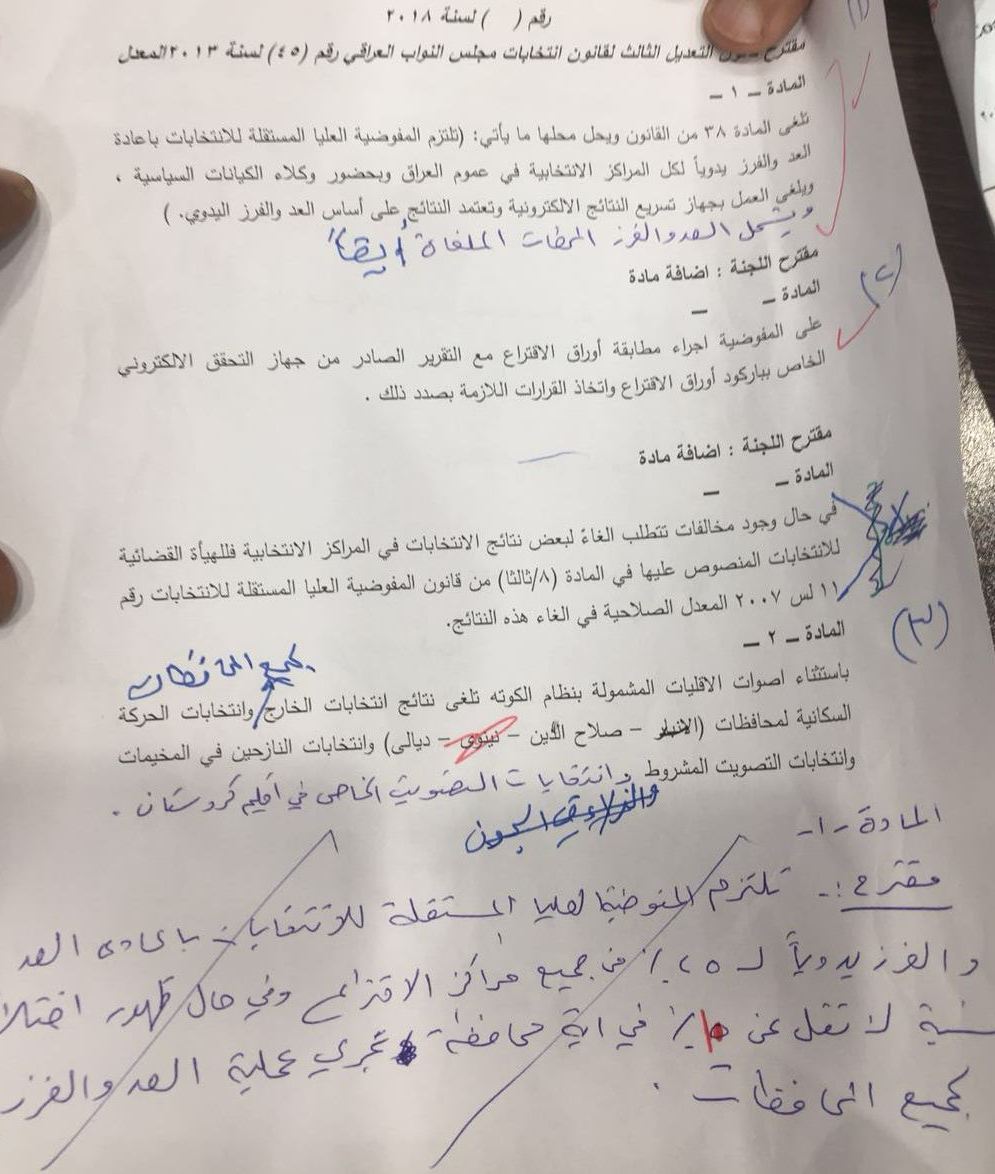 رقم (    ) لسنة ٢٠١٨
مقترح قانون التعديل الثالث لقانون انتخابات مجلس النواب العراقي رقم (٤٥) لسنة ٢٠١٣ المعدل
(١)
المادة – ١ –
تلغى المادة ٣٨ من القانون ويحل محلها ما يأتي: (تلتزم المفوضية العليا المستقلة للانتخابات باعادة
العد والفرز يدوياً لكل المراكز الانتخابية في عموم العراق وبحضور وكلاء الكيانات السياسية ،
ويلغي العمل بجهاز تسريع النتائج الالكترونية وتعتمد النتائج على أساس العد والفرز اليدوي. )
ويشمل العد والفرز المحطات الملغاة أيضاً
مقترح اللجنة : اضافة مادة
(٢)
المادة –        –
على المفوضية اجراء مطابقة أوراق الاقتراع مع التقرير الصادر من جهاز التحقق الالكتروني
الخاص بباركود أوراق الاقتراع واتخاذ القرارات اللازمة بصدد ذلك .
مقترح اللجنة : اضافة مادة
المادة –        –
في حال وجود مخالفات تتطلب الغاءً لبعض نتائج الانتخابات في المراكز الانتخابية فللهيأة القضائية
للانتخابات المنصوص عليها في المادة (٨/ثالثا) من قانون المفوضية العليا المستقلة للانتخابات رقم
١١ لس ٢٠٠٧ المعدل الصلاحية في الغاء هذه النتائج.
(٣)
المادة – ٢ –
لجميع المحافظات
باستثناء اصوات الاقليات المشمولة بنظام الكوته تلغى نتائج انتخابات الخارج وانتخابات الحركة
السكانية لمحافظات (الانبار – صلاح الدين – نينوى – ديالى) وانتخابات النازحين في المخيمات
وانتخابات التصويت المشروط وانتخابات التصويت الخاص في اقليم كردستان .
المادة - ١ -
مقترح :- تلتزم المفوضية العليا المستقلة للانتخابات باعادة العد
والفرز يدوياً لـ ٢٥٪ من جميع مراكز الاقتراع وفي حال ظهور
نسبة لا تقل عن ٪ في اية محافظة تجري عملية العد والفرز
لجميع المحافظات .